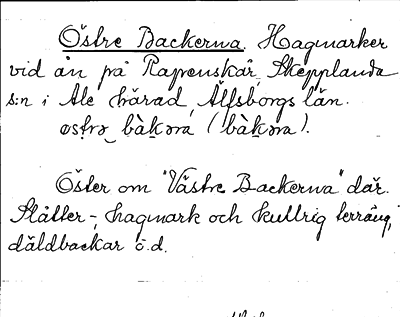 Östre Backerna. Hagmarker
vid ån på Rapenskår, Skepplanda
s:n i Ale härad, Älfsborgs län.
østrə bàkəra (bàkəra).
Öster om "Västre Backerna" där.
Slåtter-, hagmark och kullrig terräng,
däldbackar o.d.